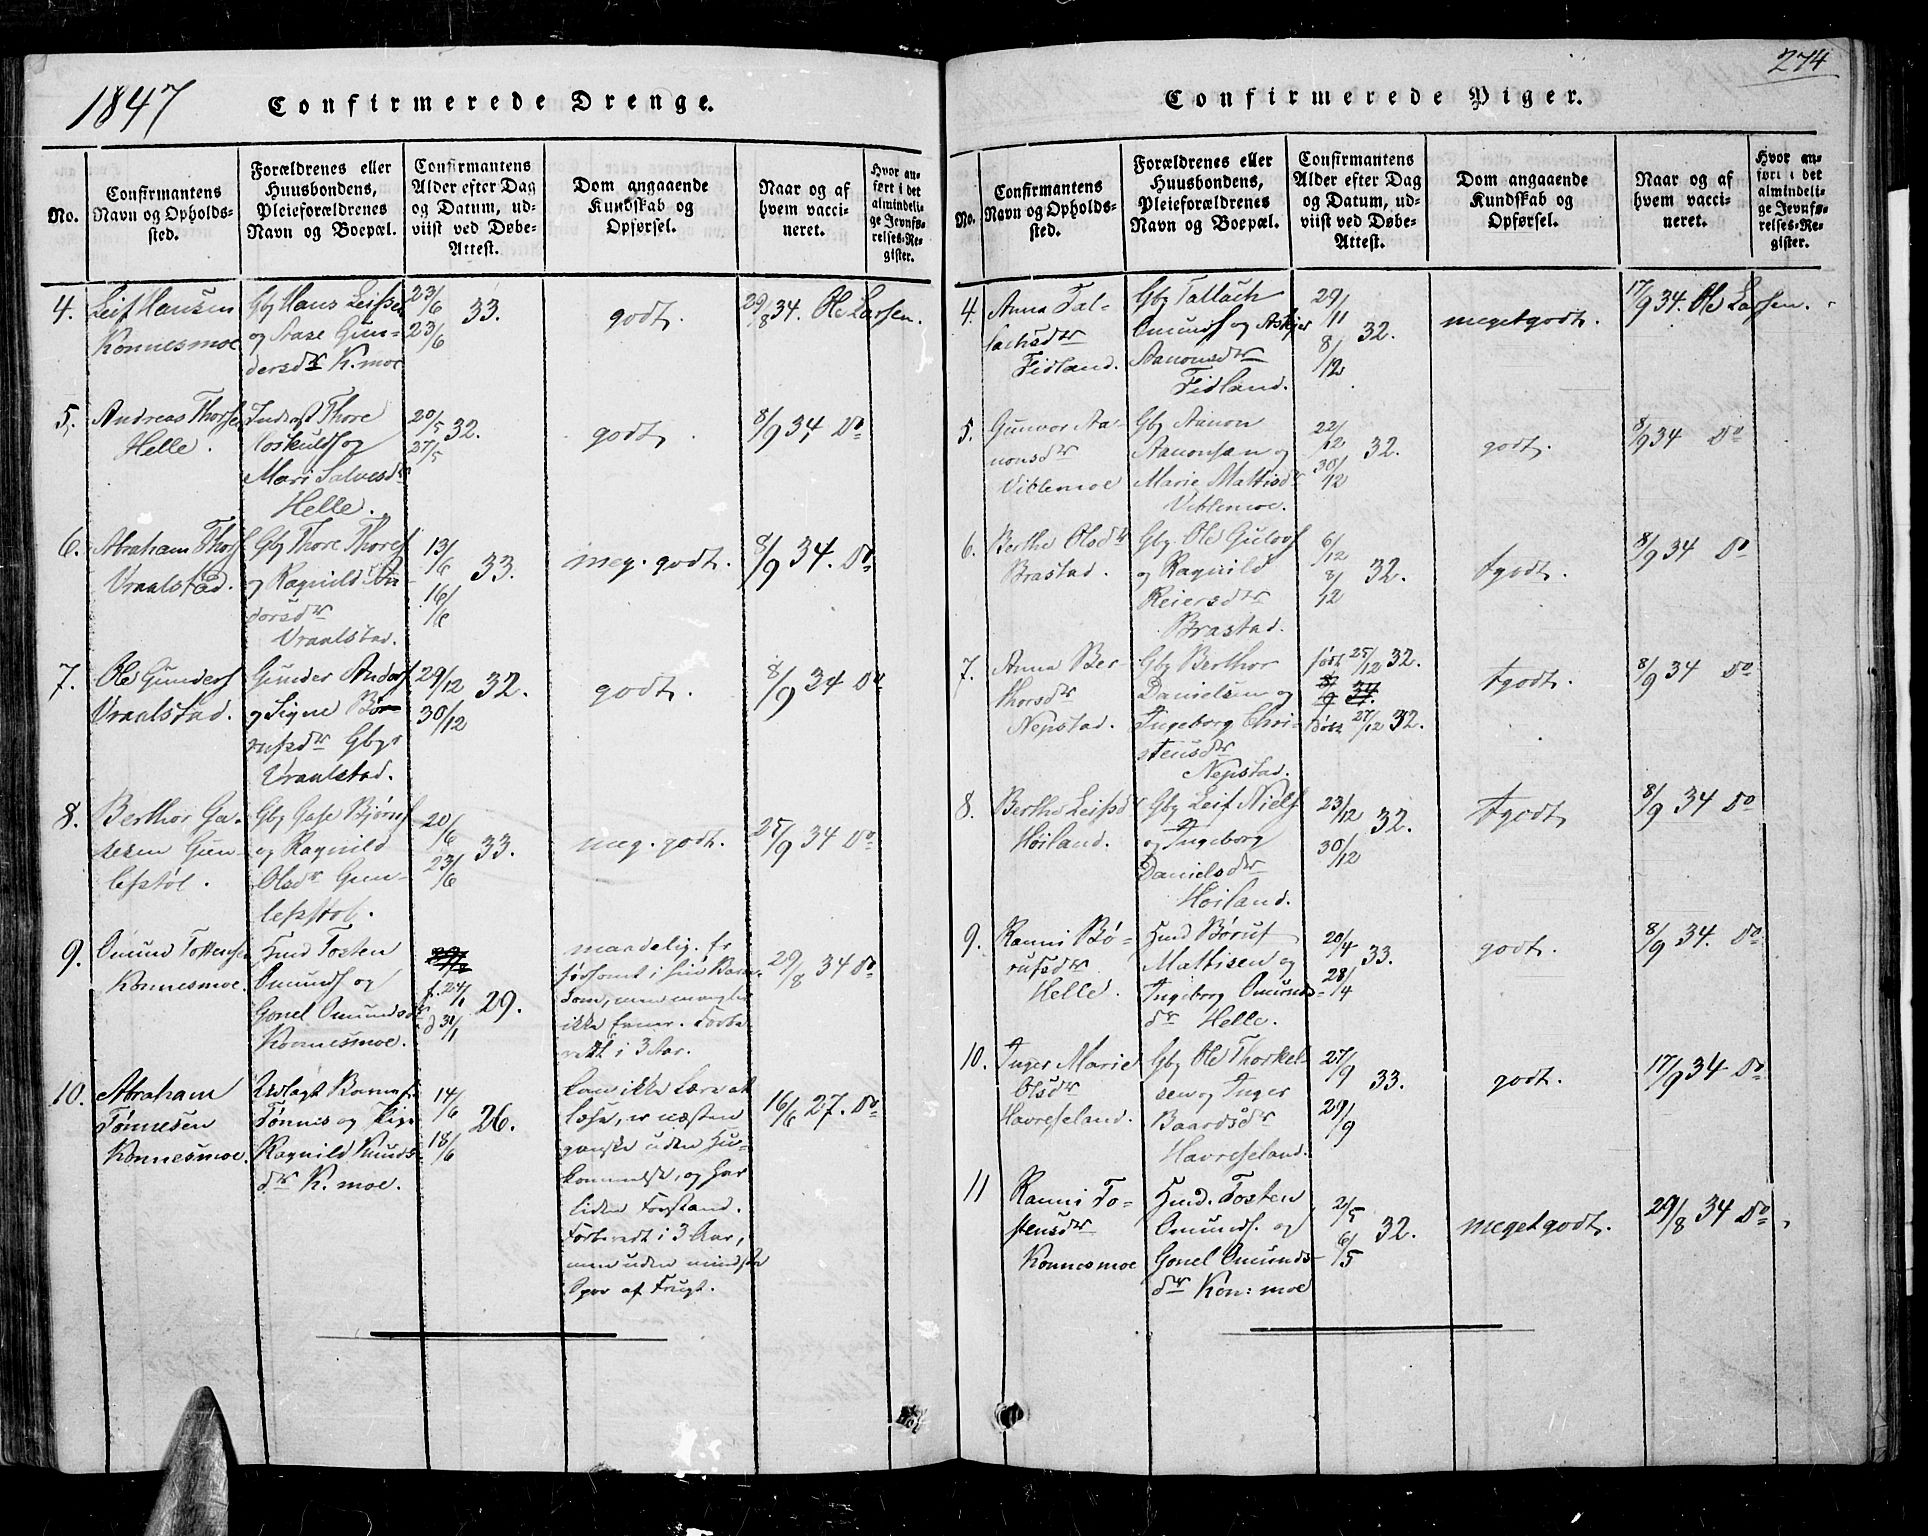 1847
Confirmerede Drenge.
No.
Confirmantens
Navn og Opholds-
sted.
Forældrenes eller
Huusbondens,
Pleieforældrenes
Navn og Boepæl.
Confirmantens
Alder efter Dag
og Datum, ud-
viist ved Døbe-
Attest.
Dom angaaende
Kundskab og
Opførsel.
Naar og af
hvem vacci-
neret.
Hvor an-
ført i det
almindeli-
ge Jevnfø-
relses-Re-
gister.
4.
Leif Hansen
Konnesmoe
Gbr Hans Leifsen
og Aase Gun-
dersdr K.moe
23/6
23/6
33.
godt.
29/8 34. Ole Larsen.
5.
Andreas Thorsen
Helle.
Inderst Thore
Toskulds og
Mari Salvesdr
Helle.
20/5
27/5
32.
godt.
8/9 34 Do
6.
Abraham Thors
Vraalstad.
Gbr Thore Thores
og Ragnild An-
dorsdr
Vraalstad.
13/6
16/6
33.
meg. godt.
8/9 34. Do
7.
Ole Gunders
Vraalstad.
Gunder Andors
og Signe Bø-
rufsdr Gbr
Vraalstad.
29/12
30/12
32.
godt.
8/9 34 Do
8.
Berthor Ga-
sesen Gun-
lefstøl.
Gbr Gase Bjørns
og Ragnild
Olsdr Gun-
lefsstøl.
20/6
23/6
33.
meg. godt.
25/9 34 Do
9.
Omund Tostensen
Konnesmoe.
Hmd Tosten
Omunds og
Gonel Omundsdr
Konnesmoe.
f. 24/1
d 31/1
29.
maadelig. Er
sørsomt i sin Barn-
dom, men mangler
ikke Evner. Forbe-
redt i 3 Aar.
29/8 34 Do
10.
Abraham
Tønnesen
Konnesmoe.
Udlagt Barnef.
Tønnis og Pige
Ragnild Knuds-
dr K. moe.
14/6
18/6
26.
kan ikke lære at
læse, er næsten
ganske uden Hu-
kommelse, og har
liden Forstand.
Forberedt i 3 Aar,
men uden mindste
Spor af Frugt.
16/6 27. Do
274
Confirmerede Piger.
No.
Confirmantens
Navn og Opholds-
sted.
Forældrenes eller
Huusbondens,
Pleieforældrenes
Navn og Boepæl.
Confirmantens
Alder efter Dag
og Datum, ud-
viist ved Døbe-
Attest.
Dom angaaende
Kundskab og
Opførsel.
Naar og af
hvem vacci-
neret.
Hvor an-
ført i det
almindeli-
ge Jevnfø-
relses-Re-
gister.
4.
Anna Tal-
lachsdr
Fidland.
Gbr Tallach
Omunds og Askjer
Aanonsdr
Fidland.
29/11
8/12
32.
meget godt.
17/9 34. Ole Larsen.
5.
Gunvor Aa-
nonsdr
Viblemoe
Gbr Aanon
Aanonsen og
Marie Mattisdr
Viblemoe.
22/12
30/12
32.
godt.
8/9 34 Do
6.
Berthe Olsdr
Brastad.
Gbr. Ole Gulovs
og Ragnild
Reiersdr
Brastad.
6/12
8/12
32.
tgodt.
8/9 34 Do
7.
Anna Ber-
thorsdr
Nepstad.
Gbr Berthor
Danielsen og
Ingeborg Chri-
stensdr
Nepstad.
født 25/12 32.
8/9 34.
døbt 27/12 32.
tgodt.
8/9 34 Do
8.
Berthe Leifsdr
Høiland.
Gbr Leif Niels
og Ingeborg
Danielsdr
Høiland.
23/12
30/12
32.
tgodt
8/9 34 Do
9.
Ranni Bø-
rufsdr
Helle.
Hmd Børuf
Mattisen og
Ingeborg Omunds-
dr Helle.
20/4
28/4
33.
godt.
8/9 34. Do
10.
Inger Marie
Olsdr
Havreseland.
Gbr Ole Thorkel-
sen og Inger
Baardsdr
Havreseland.
27/9
29/9
33.
godt.
17/9 34 Do
11
Ranni To-
stensdr
Konnesmoe
Hmd. Tosten
Omunds. og
Gonel Omunds-
dr Kon: moe
2/5
6/5
32.
meget godt.
29/8 34 Do